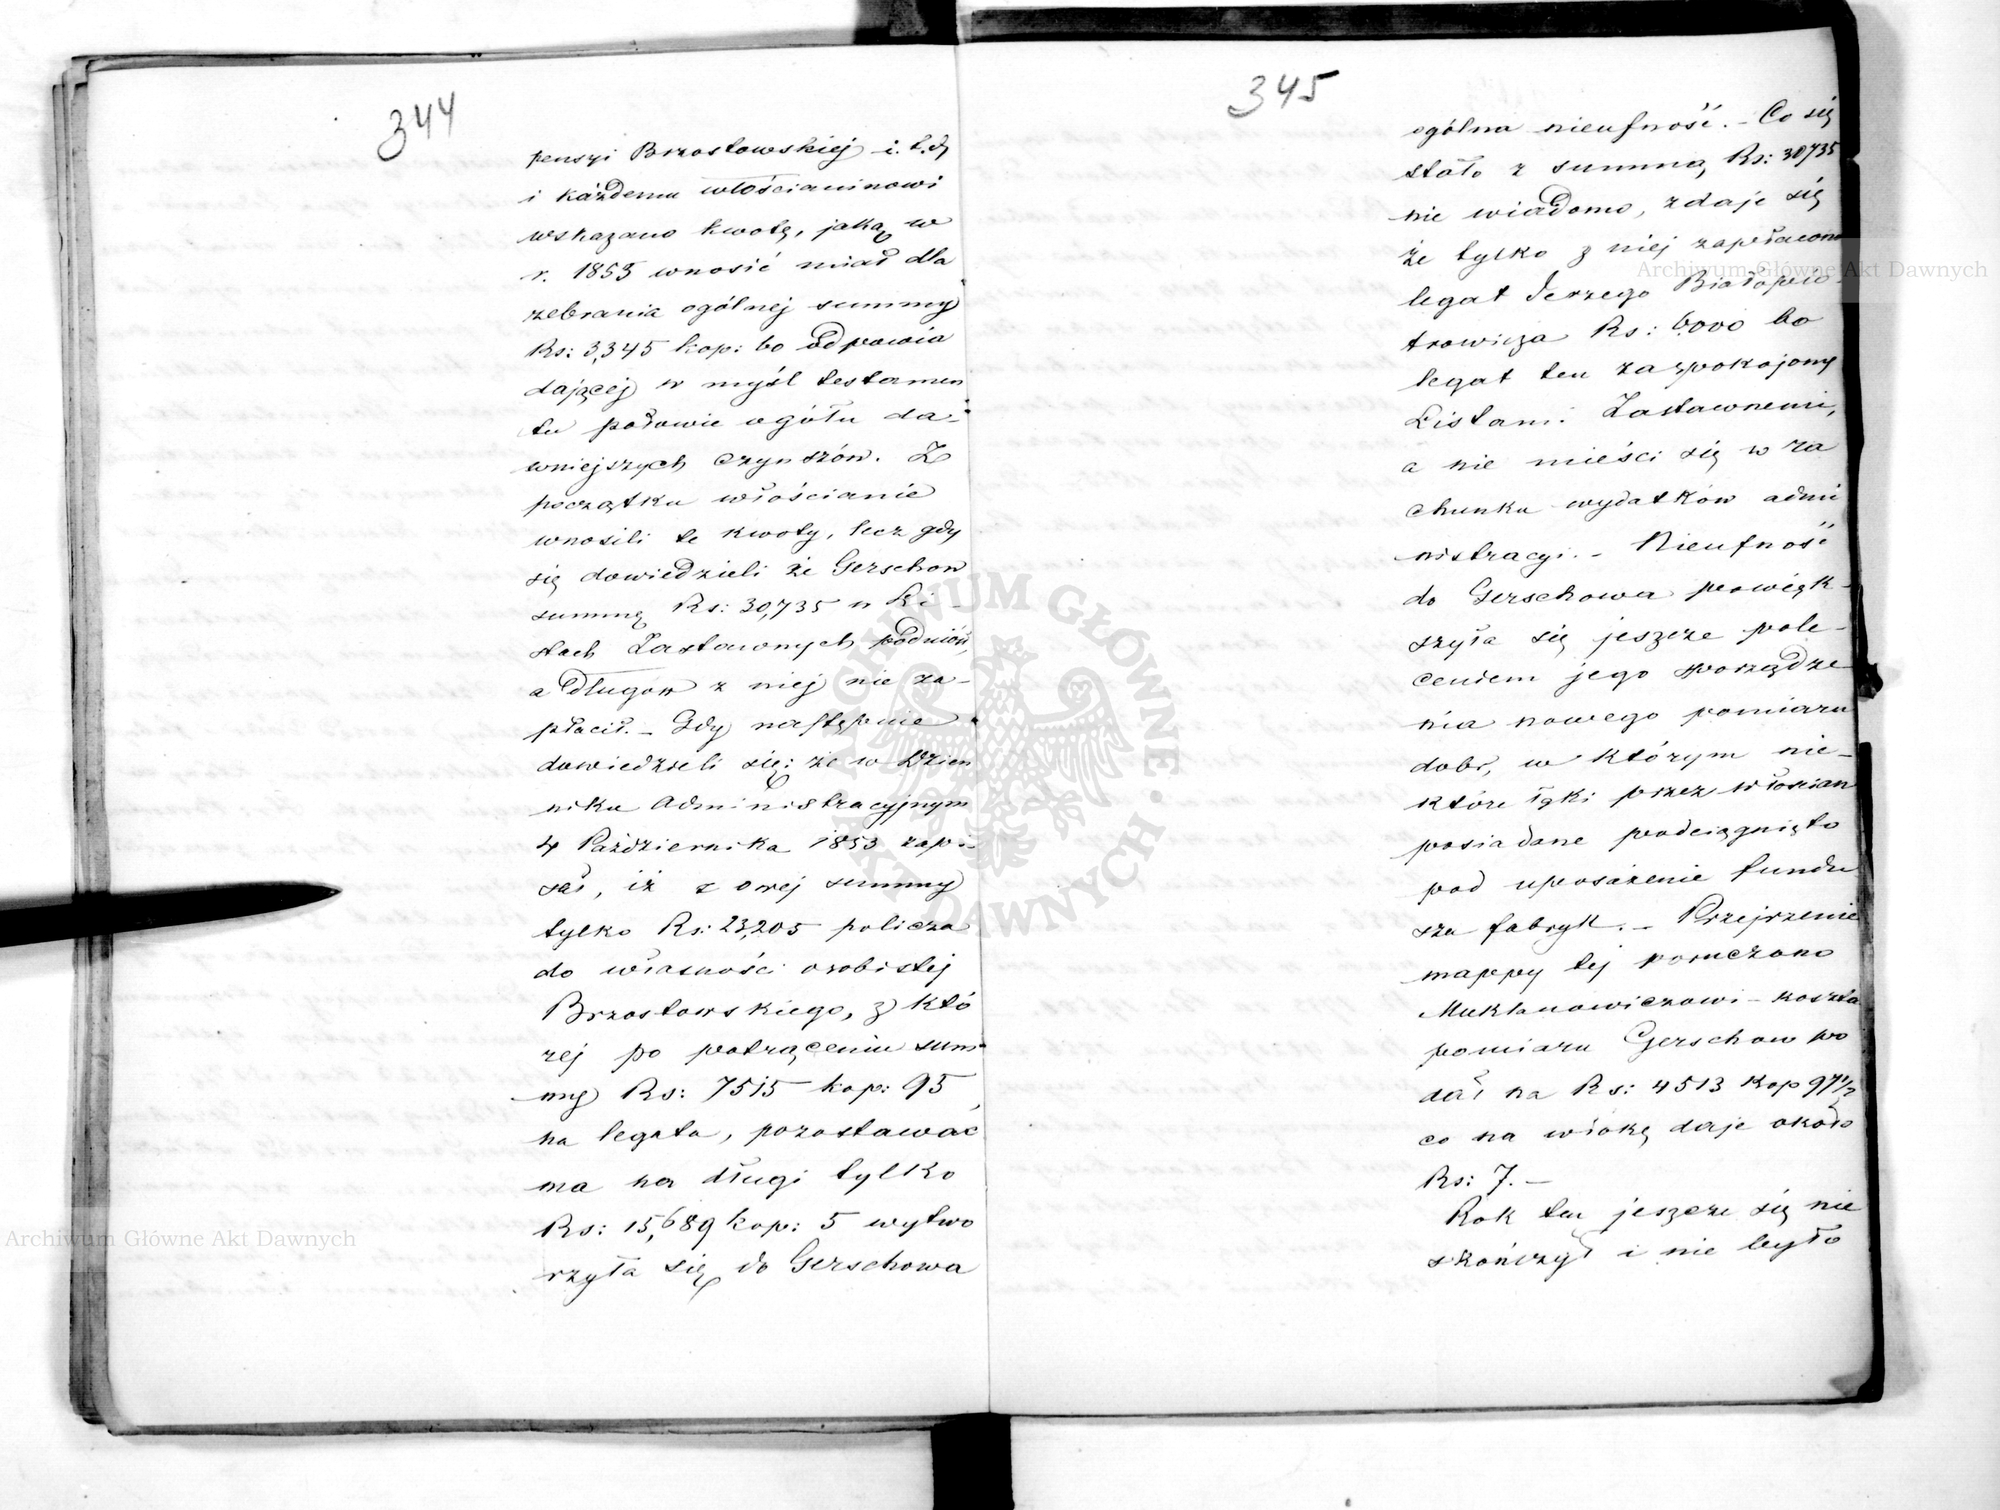 344
pensyi Brzostowskiej i. t. d,
i każdemu włościaninowi
wskazano kwotę, jaką w
r. 1853 wnosić miał dla
zebrania ogólnej summy
Rs: 3,345 kop: 60 odpowia
dającej w myśl testamen
tu połowie ogółu da-
wniejszych czynszów. Z
początku włościanie
wnosili te kwoty, lecz gdy
się dowiedzieli że Gerschow
summę Rs: 30,735 w Li-
stach Zastawnych podniósł,
a długów z niej nie za-
płacił. - Gdy następnie
dowiedzieli się: że w Dzien
niku Administracyjnym
4 Października 1853 zapi-
sał, iż z owej summy
tylko Rs: 23,205 policza
do własności osobistej
Brzostowskiego, z któ
rej po potrąceniu sum-
my Rs: 7515 kop: 95
na legata, pozostawać
ma na długi tylko
Rs: 15,689 kop: 5 wytwo
rzyła się do Gerschowa
345
ogólna nieufność. - Co się
stało z summą Rs: 30735
nie wiadomo, zdaje się
że tylko z niej zapłacono
legat Jerzego Białopio-
trowicza Rs: 6000 bo
legat ten zaspokojony
Listami Zastawnemi,
a nie mieści się w ra
chunku wydatków admi
nistracyi. - Nieufność
do Gerschowa powięk-
szyła się jeszcze pole-
ceniem jego sporządze
nia nowego pomiaru
dobr, w którym nie-
które łąki przez włościan
posiadane podciągnięto
pod uposażenie fundu
szu fabryk. - Przejrzenie
mappy tej poruczono
Mukłanowiczowi - koszta
pomiaru Gerschow po
dał na Rs: 4513 kop 97 1/2
co na włókę daje około
Rs: 7. -
Rok ten jeszcze się nie
skończył i nie było
ARCHIWUM GŁÓWNE AKT DAWNYCH
Archiwum Główne Akt Dawnych
Archiwum Główne Akt Dawnych